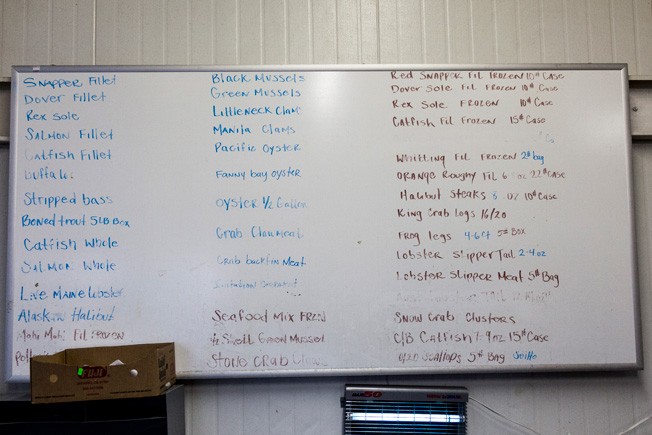 Snapper Fillet
Dover Fillet
Rex Sole
Salmon Fillet
Catfish Fillet
buffalo
Stripped bass
Boned trout 5LB Box
Catfish Whole
Salmon Whole
Live Maine Lobster
Alaskan Halibut
Mahi Mahi Fil Frozen
Black Mussels
Green Mussels
Littleneck Clams
Manila Clams
Pacific Oyster
Fanny bay oyster
Oyster 1/2 Gallon
Crab Claw Meat
Crab backfin Meat
Imitation Crabmeat
Seafood Mix FRZN
1/2 Shell Green Mussel
Stone Crab Claws
Red Snapper Fil Frozen 10# Case
Dover Sole Fil Frozen 10# Case
Rex Sole Frozen 10# Case
Catfish Fil Frozen 15# Case
Whitting Fil Frozen 2# bag
Orange Roughy Fil 6 oz 22# Case
Halibut Steaks 8 oz 10# Case
King Crab Legs 16/20
Frog legs 4-6ct 5# Box
Lobster Slipper Tail 2-4oz
Lobster Slipper Meat 5# Bag
Snow Crab Clusters
C/B Catfish 7-9oz 15# Case
Scallops 5# Bag
Fuji